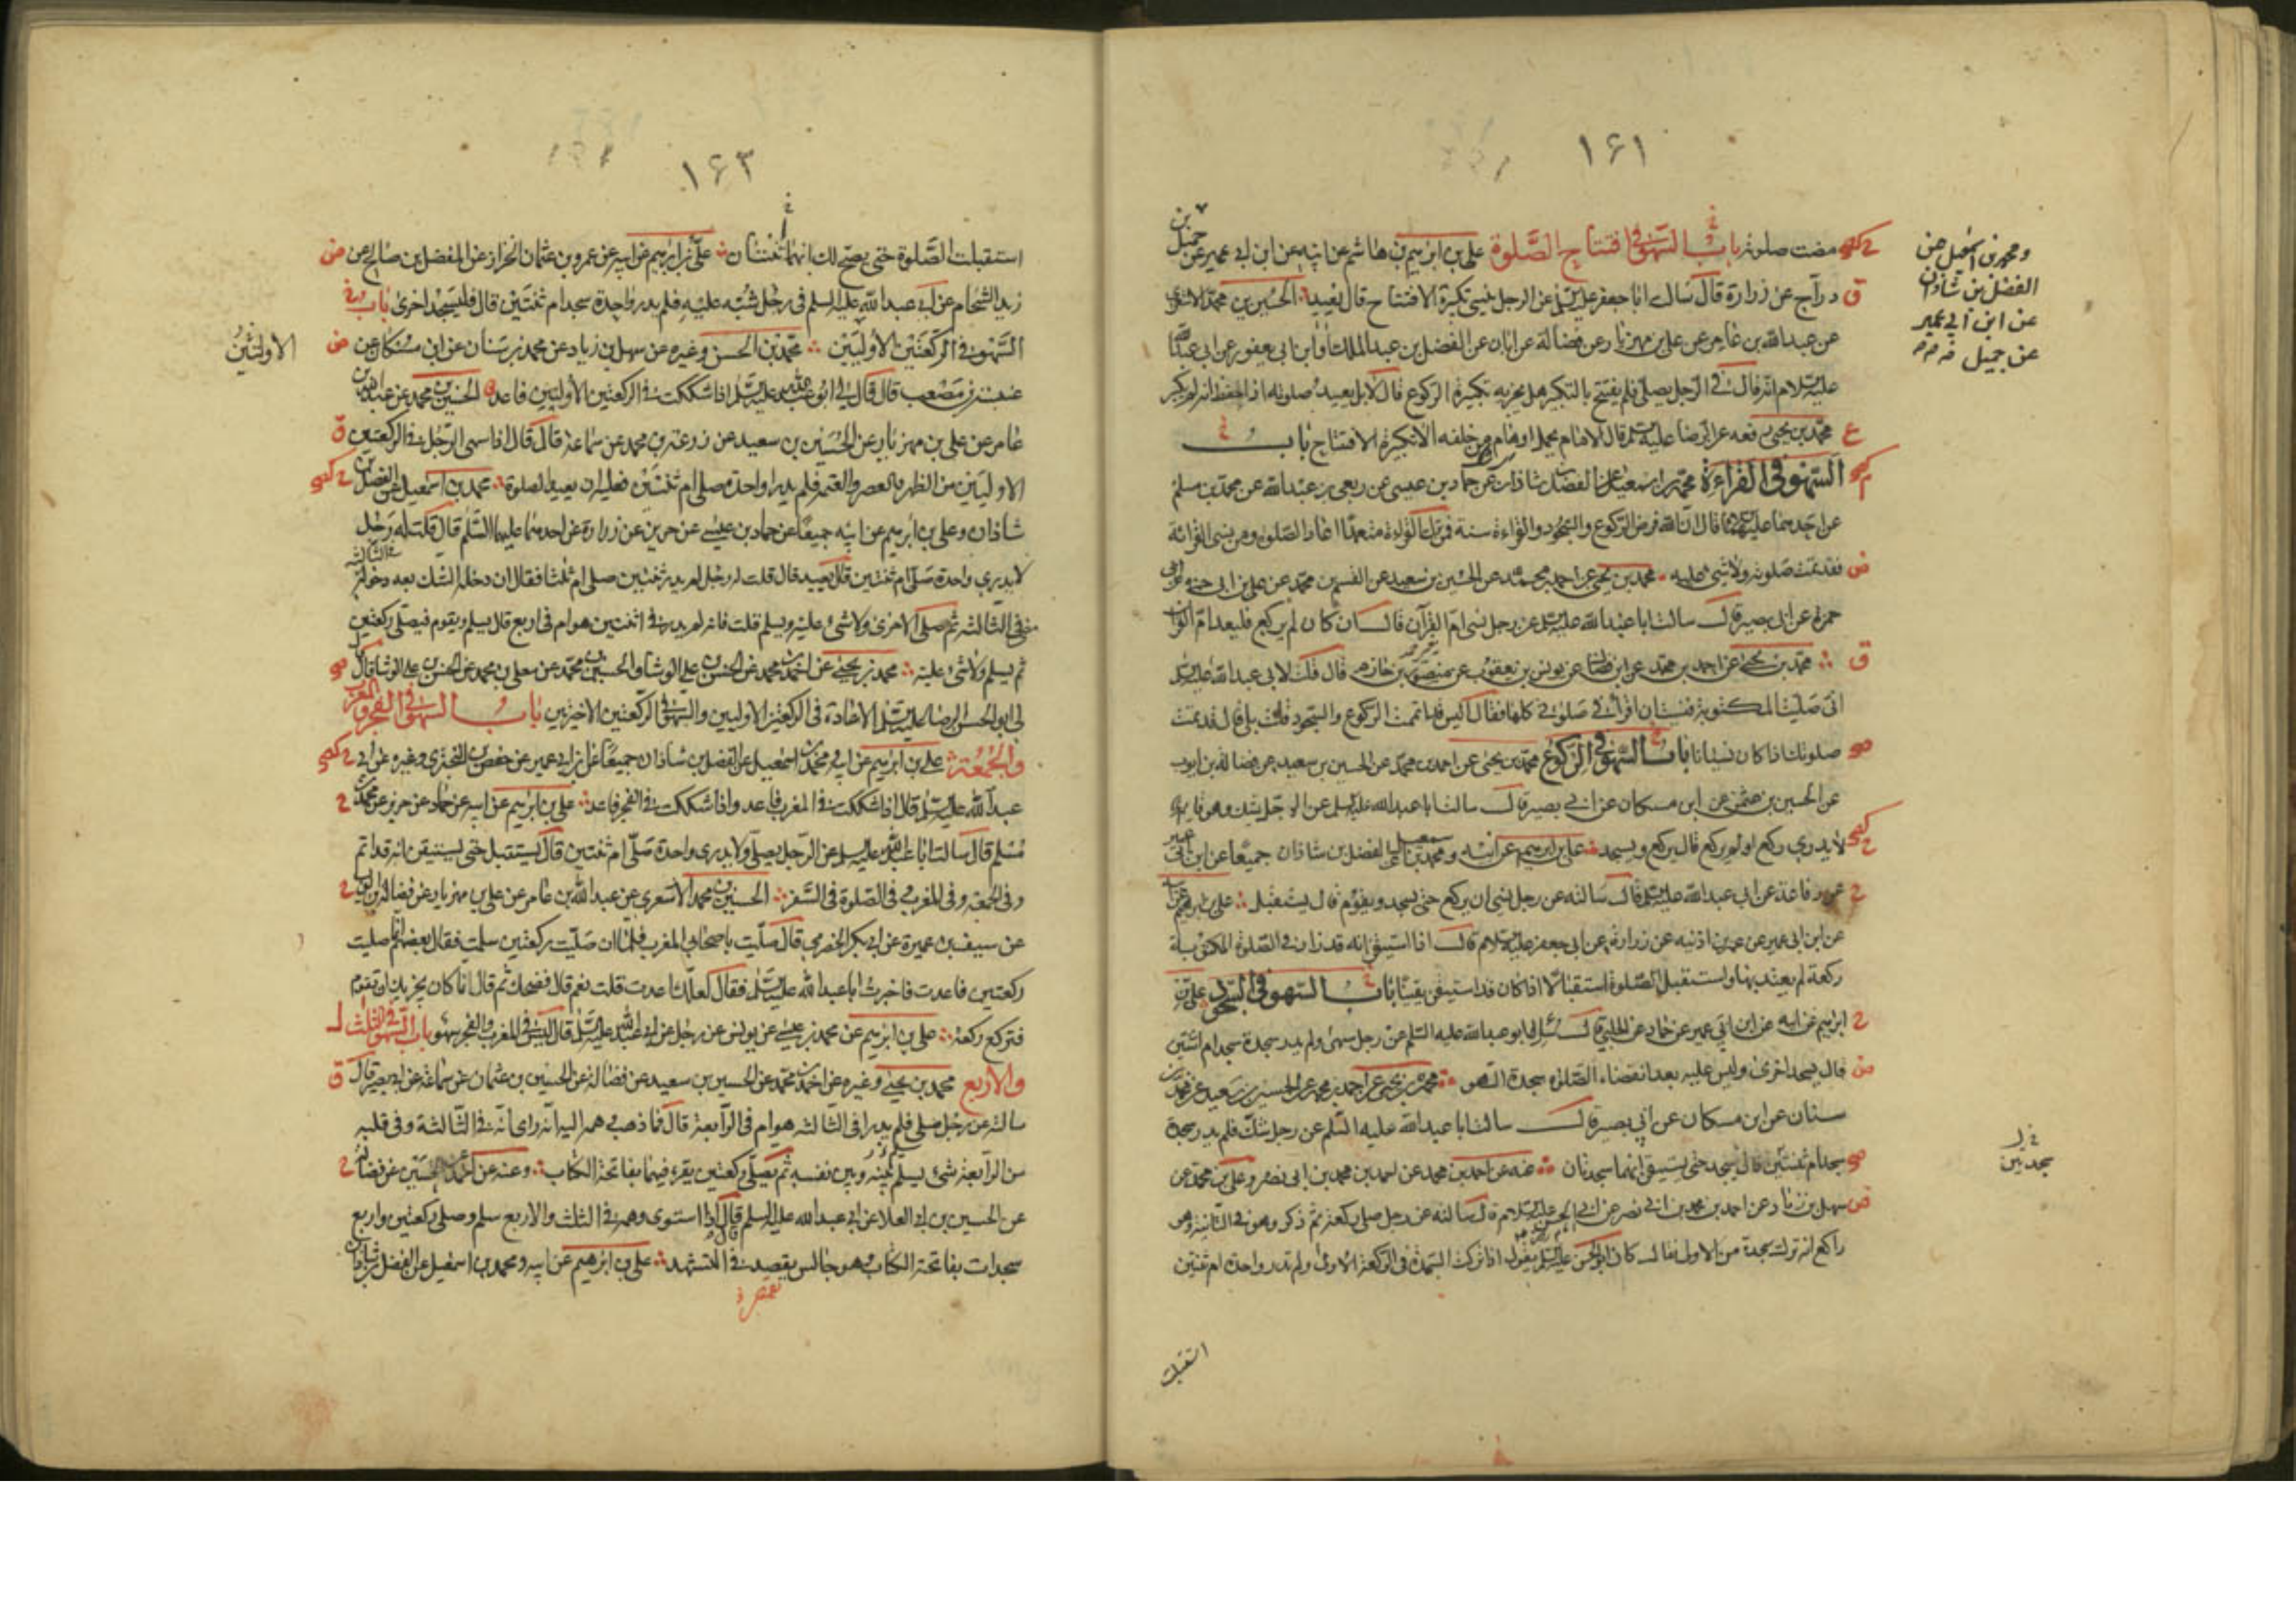 ١٦١
مضت صلوته باب السهو في افتتاح الصلوة علي بن ابرهيم بن هاشم عن ابيه عن ابن ابي عمير عن جميل بن
دراج عن زرارة قال سالت ابا جعفر عليه السلم عن الرجل ينسى تكبيرة الافتتاح قال يعيد الحسين بن محمد الاشعري
عن عبدالله بن عامر عن علي بن مهزيار عن فضالة عن ابان عن الفضل بن عبد الملك او ابن ابي يعفور عن ابي عبدالله
عليه السلام انه قال في الرجل يصلي فلم يفتتح بالتكبير هل يجزيه تكبيرة الركوع قال لا بل يعيد صلوته اذا حفظ انه لم يكبر
محمد بن يحيى رفعه عن الرضا عليه السلم قال الامام يحمل اوهام من خلفه الا تكبيرة الافتتاح باب
السهو في القراءة محمد بن اسمعيل عن الفضل بن شاذان عن حماد بن عيسى عن ربعي بن عبدالله عن محمد بن مسلم
عن احدهما عليهما قال ان الله فرض الركوع والسجود والقراءة سنة فمن ترك القراءة متعمدا اعاد الصلوة ومن نسي القراءة
فقد تمت صلوته ولا شيء عليه محمد بن يحيى عن احمد بن محمد عن الحسين بن سعيد عن القسم بن محمد عن علي بن ابي
حمزة عن ابي بصير قال سالت ابا عبدالله عليه السلم عن رجل نسي ام القرآن قال ان كان لم يركع فليعد ام القرآن
محمد بن يحيى عن احمد بن محمد عن ابن فضال عن يونس بن يعقوب عن منصور بن حازم قال قلت لابي عبدالله عليه السلم
اني صليت المكتوبة فنسيت ان اقرأ في صلوتي كلها فقال اليس قد اتممت الركوع والسجود قلت بلى قال قد تمت
صلوتك اذا كان نسيانا باب السهو في الركوع محمد بن يحيى عن احمد بن محمد عن الحسين بن سعيد عن فضالة بن ايوب
عن الحسين بن عثمن عن ابن مسكان عن ابي بصير قال سالت ابا عبدالله عليه السلم عن الرجل يشك وهو قايم
لا يدري ركع او لم يركع قال يركع ويسجد علي بن ابرهيم عن ابيه ومحمد بن اسمعيل عن الفضل بن شاذان جميعا عن ابن ابي عمير
عن رفاعة عن ابي عبدالله عليه السلم قال سالته عن رجل نسي ان يركع حتى يسجد ويقوم قال يستقبل علي بن ابرهيم
عن ابن ابي عمير عن عمر بن اذينه عن زرارة عن ابي جعفر عليه السلام قال اذا استيقن انه قد زاد في الصلوة المكتوبة
ركعة لم يعتد بها واستقبل الصلوة استقبالا اذا كان قد استيقن يقينا باب السهو في السجود علي بن
ابرهيم عن ابيه عن ابن ابي عمير عن حماد عن الحلبي قال سئل ابو عبدالله عليه السلم عن رجل سهى ولم يدر سجدة سجد ام اثنتين
قال يسجد اخرى وليس عليه بعد انقضاء الصلوة سجدة السهو محمد بن يحيى عن احمد بن محمد عن الحسين بن سعيد عن محمد بن
سنان عن ابن مسكان عن ابي بصير قال سالت ابا عبدالله عليه السلم عن رجل شك فلم يدر سجدة
سجد ام ثنتين قال يسجد حتى يستيقن انهما سجدتان عنه عن احمد بن محمد عن احمد بن محمد بن ابي نصر وعلي بن محمد عن
سهل بن زياد عن احمد بن محمد بن ابي نصر عن ابي الحسن عليه السلام قال سالته عن رجل صلى ركعة ثم ذكر وهو في الثانية وهو
راكع انه ترك سجدة من الاولى فقال كان ابو الحسن عليه السلم يقول اذا تركت السجدة في الركعة الاولى ولم تدر واحدة ام ثنتين
استقبلت
ومحمد بن اسمعيل عن
الفضل بن شاذان
عن ابن ابي عمير
عن جميل
سجدتين
١٦٣
استقبلت الصلوة حتى يصح لك انهما ثنتان علي بن ابرهيم عن ابيه عن عمرو بن عثمان الخزاز عن المفضل بن صالح عن
زيد الشحام عن ابي عبدالله عليه السلم في رجل شبه عليه فلم يدر واحدة سجد ام ثنتين قال فليسجد اخرى باب
السهو في الركعتين الاوليين محمد بن الحسن وغيره عن سهل بن زياد عن محمد بن سنان عن ابن مسكان عن
عنبسة بن مصعب قال قال لي ابو عبدالله عليه السلم اذا شككت في الركعتين الاوليين فاعد الحسين بن محمد عن عبدالله بن
عامر عن علي بن مهزيار عن الحسين بن سعيد عن زرعة بن محمد عن سماعة قال قال اذا سهى الرجل في الركعتين
الاوليين من الظهر والعصر والعتمة فلم يدر واحدة صلى ام ثنتين فعليه ان يعيد الصلوة محمد بن اسمعيل عن الفضل بن
شاذان وعلي بن ابرهيم عن ابيه جميعا عن حماد بن عيسى عن حريز عن زرارة عن احدهما عليهما السلم قال قلت له رجل
لا يدري واحدة صلى ام ثنتين قال يعيد قال قلت له رجل لم يدر ثنتين صلى ام ثلثا فقال ان دخله الشك بعد دخوله في الثالثة
مضى في الثالثة ثم صلى الاخرى ولا شيء عليه ويسلم قلت فانه لم يدر في اثنتين هو ام في اربع قال يسلم ويقوم فيصلي ركعتين
ثم يسلم ولا شيء عليه محمد بن يحيى عن احمد بن محمد عن الحسن بن علي الوشا والحسين بن محمد عن معلى بن محمد عن الحسن بن علي الوشا قال
لي ابو الحسن الرضا عليه السلم الاعادة في الركعتين الاوليين والسهو في الركعتين الاخيرتين باب السهو في الفجر والمغرب
والجمعة علي بن ابرهيم عن ابيه ومحمد بن اسمعيل عن الفضل بن شاذان جميعا عن ابن ابي عمير عن حفص بن البختري وغيره عن ابي
عبدالله عليه السلم قال اذا شككت في المغرب فاعد واذا شككت في الفجر فاعد علي بن ابرهيم عن ابيه عن حماد عن حريز عن محمد بن
مسلم قال سالت ابا عبدالله عليه السلم عن الرجل يصلي ولا يدري واحدة صلى ام ثنتين قال يستقبل حتى يستيقن انه قد اتم
وفي الجمعة وفي المغرب وفي الصلوة في السفر الحسين بن محمد الاشعري عن عبدالله بن عامر عن علي بن مهزيار عن فضالة بن ايوب
عن سيف بن عميرة عن ابي بكر الحضرمي قال صليت باصحابي المغرب فلما ان صليت ركعتين سلمت فقال بعضهم انما صليت
ركعتين فاعدت فاخبرت ابا عبدالله عليه السلم فقال لعلك اعدت قلت نعم قال فضحك ثم قال انما كان يجزيك ان تقوم
فتركع ركعة علي بن ابرهيم عن محمد بن عيسى عن يونس عن رجل عن ابي عبدالله عليه السلم قال ليس في المغرب والفجر سهو باب السهو في الثلث
والاربع محمد بن يحيى وغيره عن احمد بن محمد عن الحسين بن سعيد عن فضالة عن الحسين بن عثمان عن سماعة عن ابي بصير قال
سالته عن رجل صلى فلم يدر افي الثالثة هو ام في الرابعة قال فما ذهب وهمه اليه ان راى انه في الثالثة وفي قلبه
من الرابعة شيء يسلم بينه وبين نفسه ثم يصلي ركعتين يقرء فيهما بفاتحة الكتاب وعنه عن احمد عن الحسين عن فضالة
عن الحسين بن ابي العلا عن ابي عبدالله عليه السلم قال اذا استوى وهمه في الثلث والاربع سلم وصلى ركعتين واربع
سجدات بفاتحة الكتاب وهو جالس يقصر في التشهد علي بن ابرهيم عن ابيه ومحمد بن اسمعيل عن الفضل بن شاذان
الاولتين